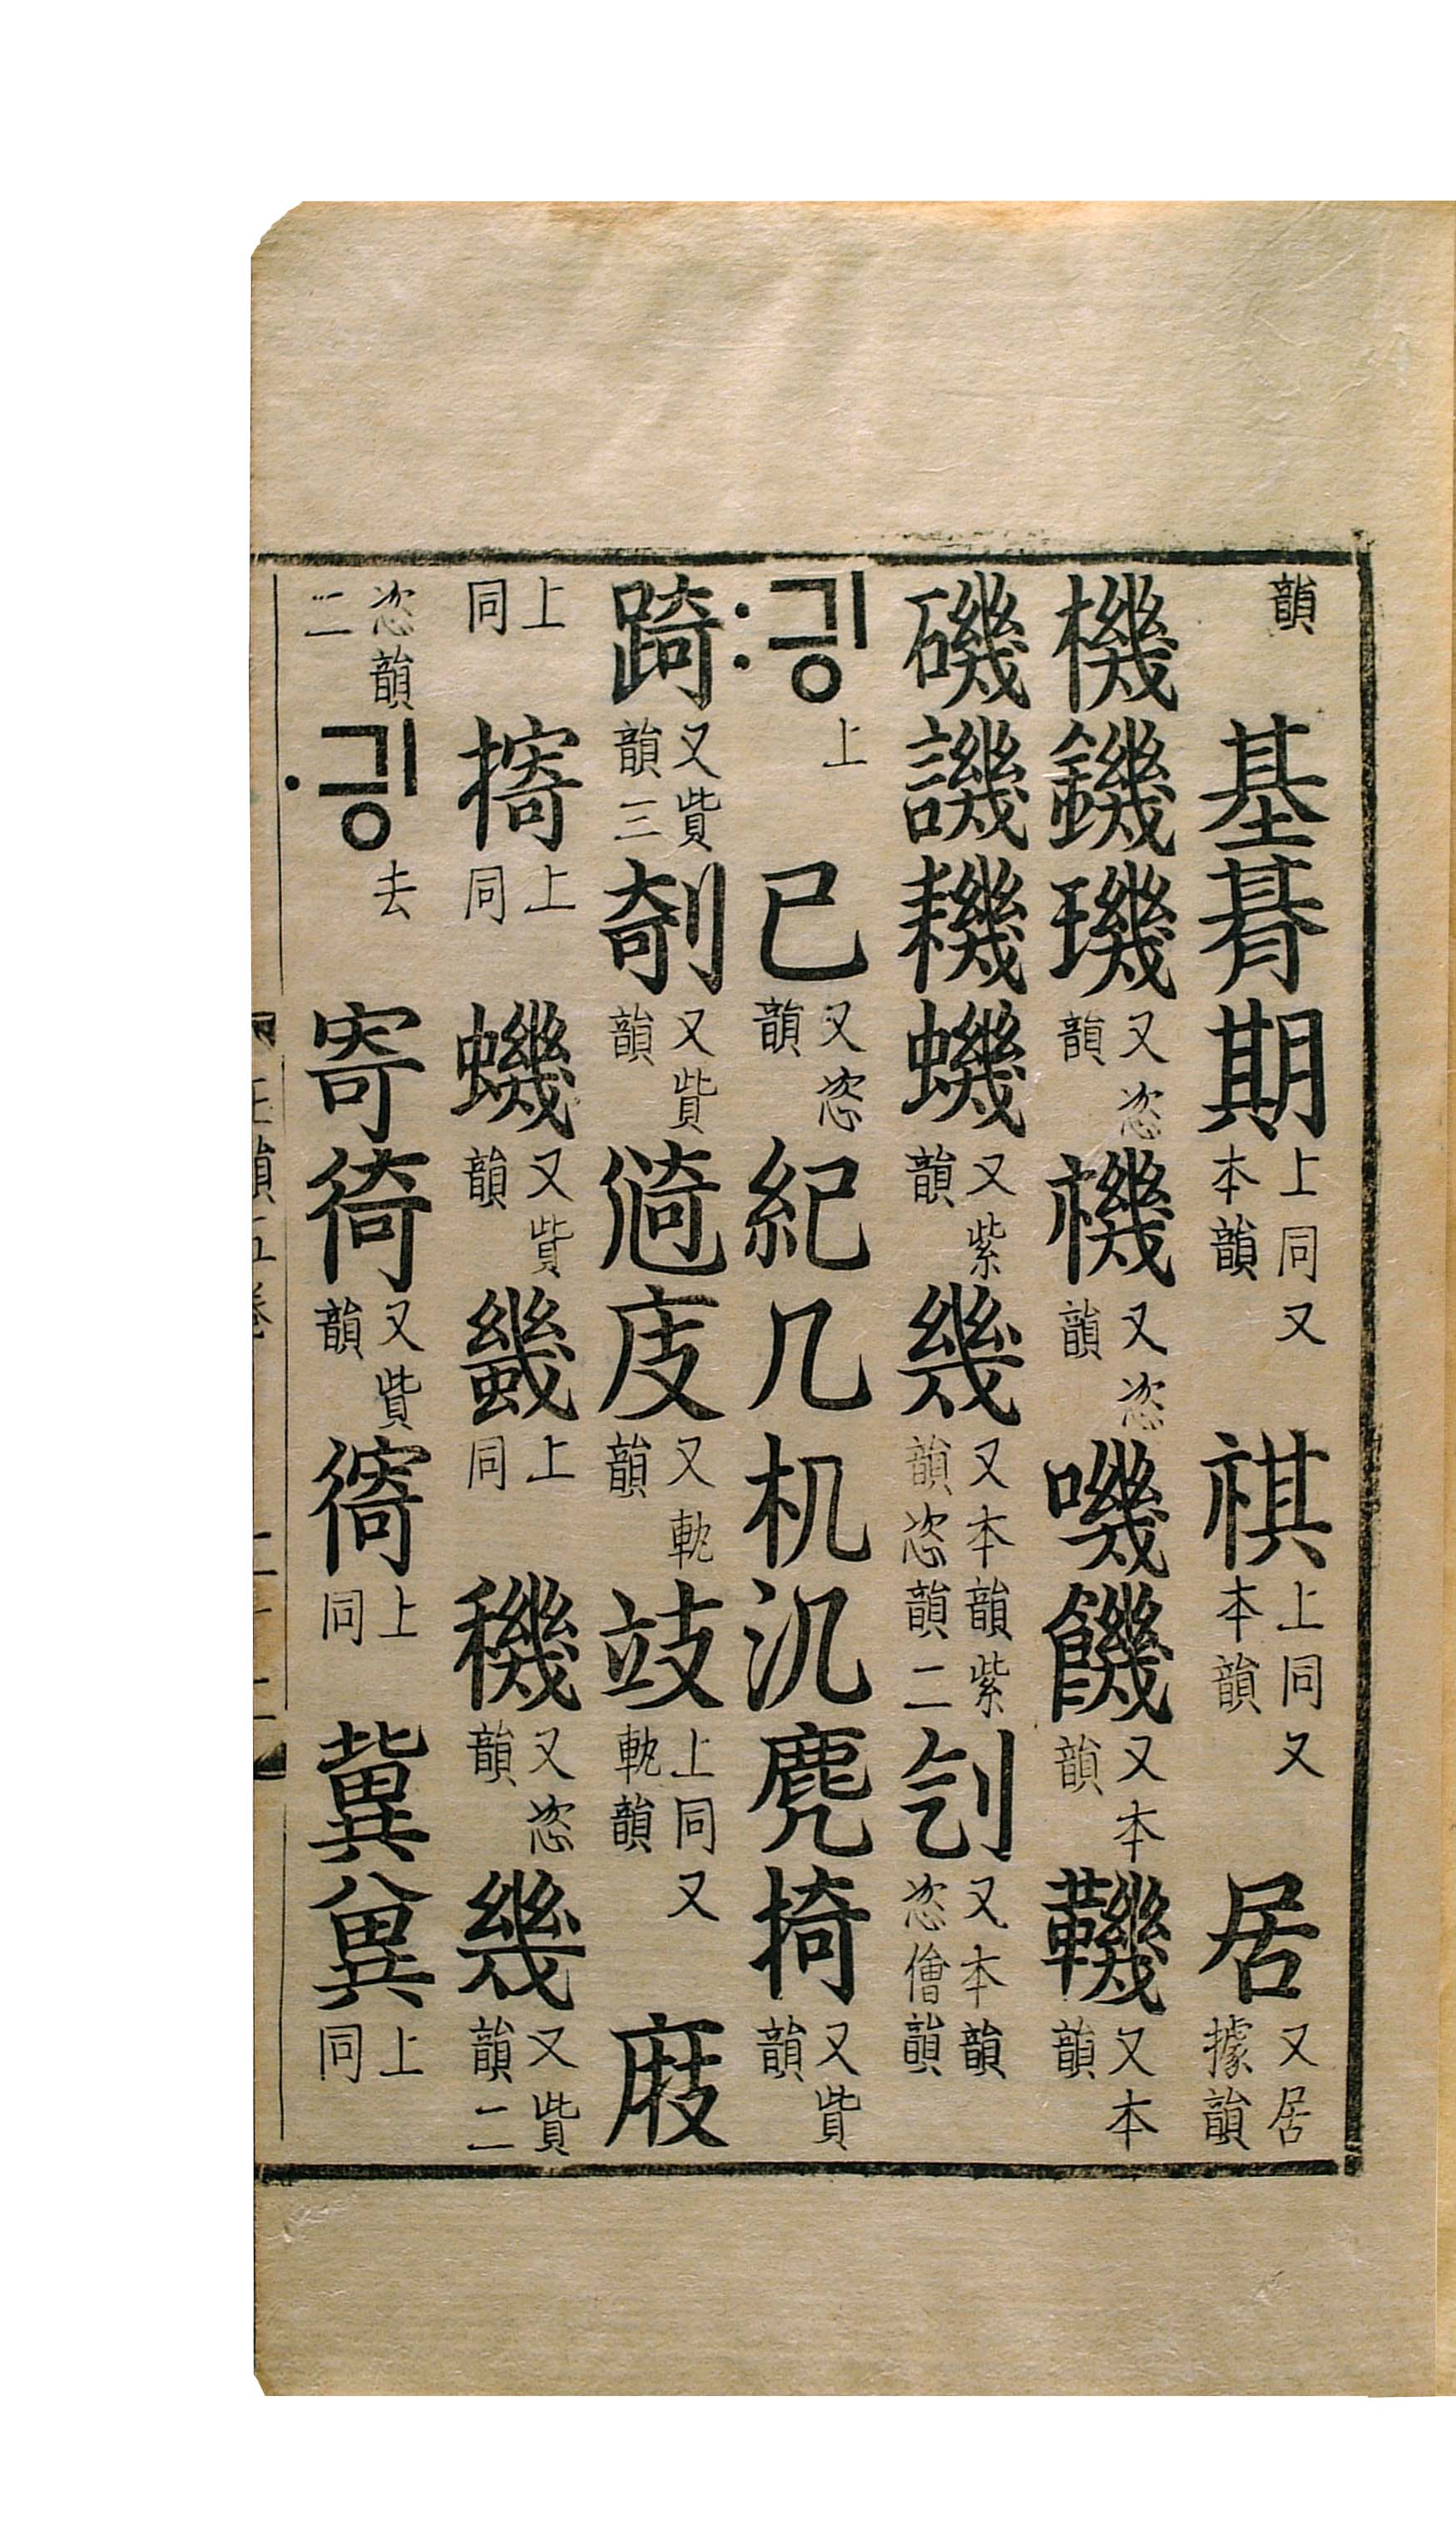 韻 基朞期上同又本韻祺上同又本韻居又居據韻
機鐖璣又恣韻禨又恣韻嘰饑又本韻鞿又本韻
磯譏耭蟣又紫韻幾又本韻紫韻恣韻二刉又本韻恣儈韻
:긩上 己又恣韻紀几机汎麂掎又貲韻
踦又貲韻三剞又貲韻徛庋又䡄韻攱上同又䡄韻庪
上同 㨳上同 蟣又貲韻蟣上同 穖又恣韻幾又貲韻二
恣韻二 ·긩去 寄徛又貲韻徛上同 冀兾上同